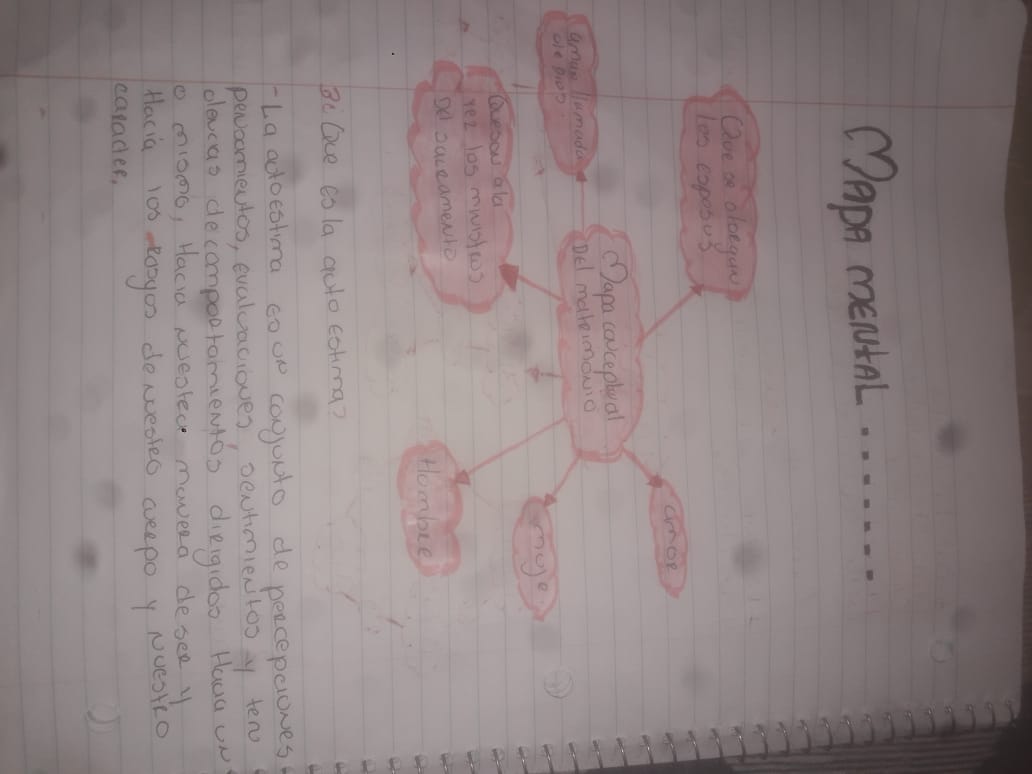 MAPA MENTAL.......
Que se otorgan
los esposos
amor llamada
de Dios.
Mapa conceptual
Del matrimonio
amor
Que son a la
vez los ministros
Del sacramento
muje.
Hombre
3¿Que es la auto estima?
-La autoestima es un conjunto de percepciones
pensamientos, evaluaciones, sentimientos y ten
dencias de comportamientos dirigidos Hacia un
o mismo, Hacia nuestra manera de ser y
Hacia los rasgos de nuestro cuerpo y nuestro
caracter.